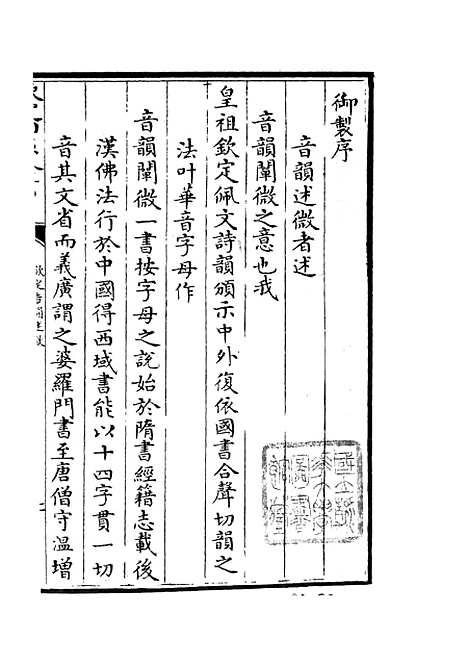 御製序
音韻述微者述
音韻闡微之意也我
皇祖欽定佩文詩韻頒示中外復依國書合聲切韻之
法叶華音字母作
音韻闡微一書按字母之說始於隋書經籍志載後
漢佛法行於中國得西域書能以十四字貫一切
音其文省而義廣謂之婆羅門書至唐僧守溫增
欽定音韻述微